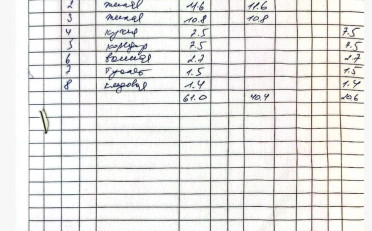 2 жилая 11.6 11.6
3 жилая 10.8 10.8
4 кухня 7.5 7.5
5 коридор 7.5 7.5
6 ванная 2.7 2.7
7 туалет 1.5 1.5
8 кладовая 1.4 1.4
61.0 40.4 20.6